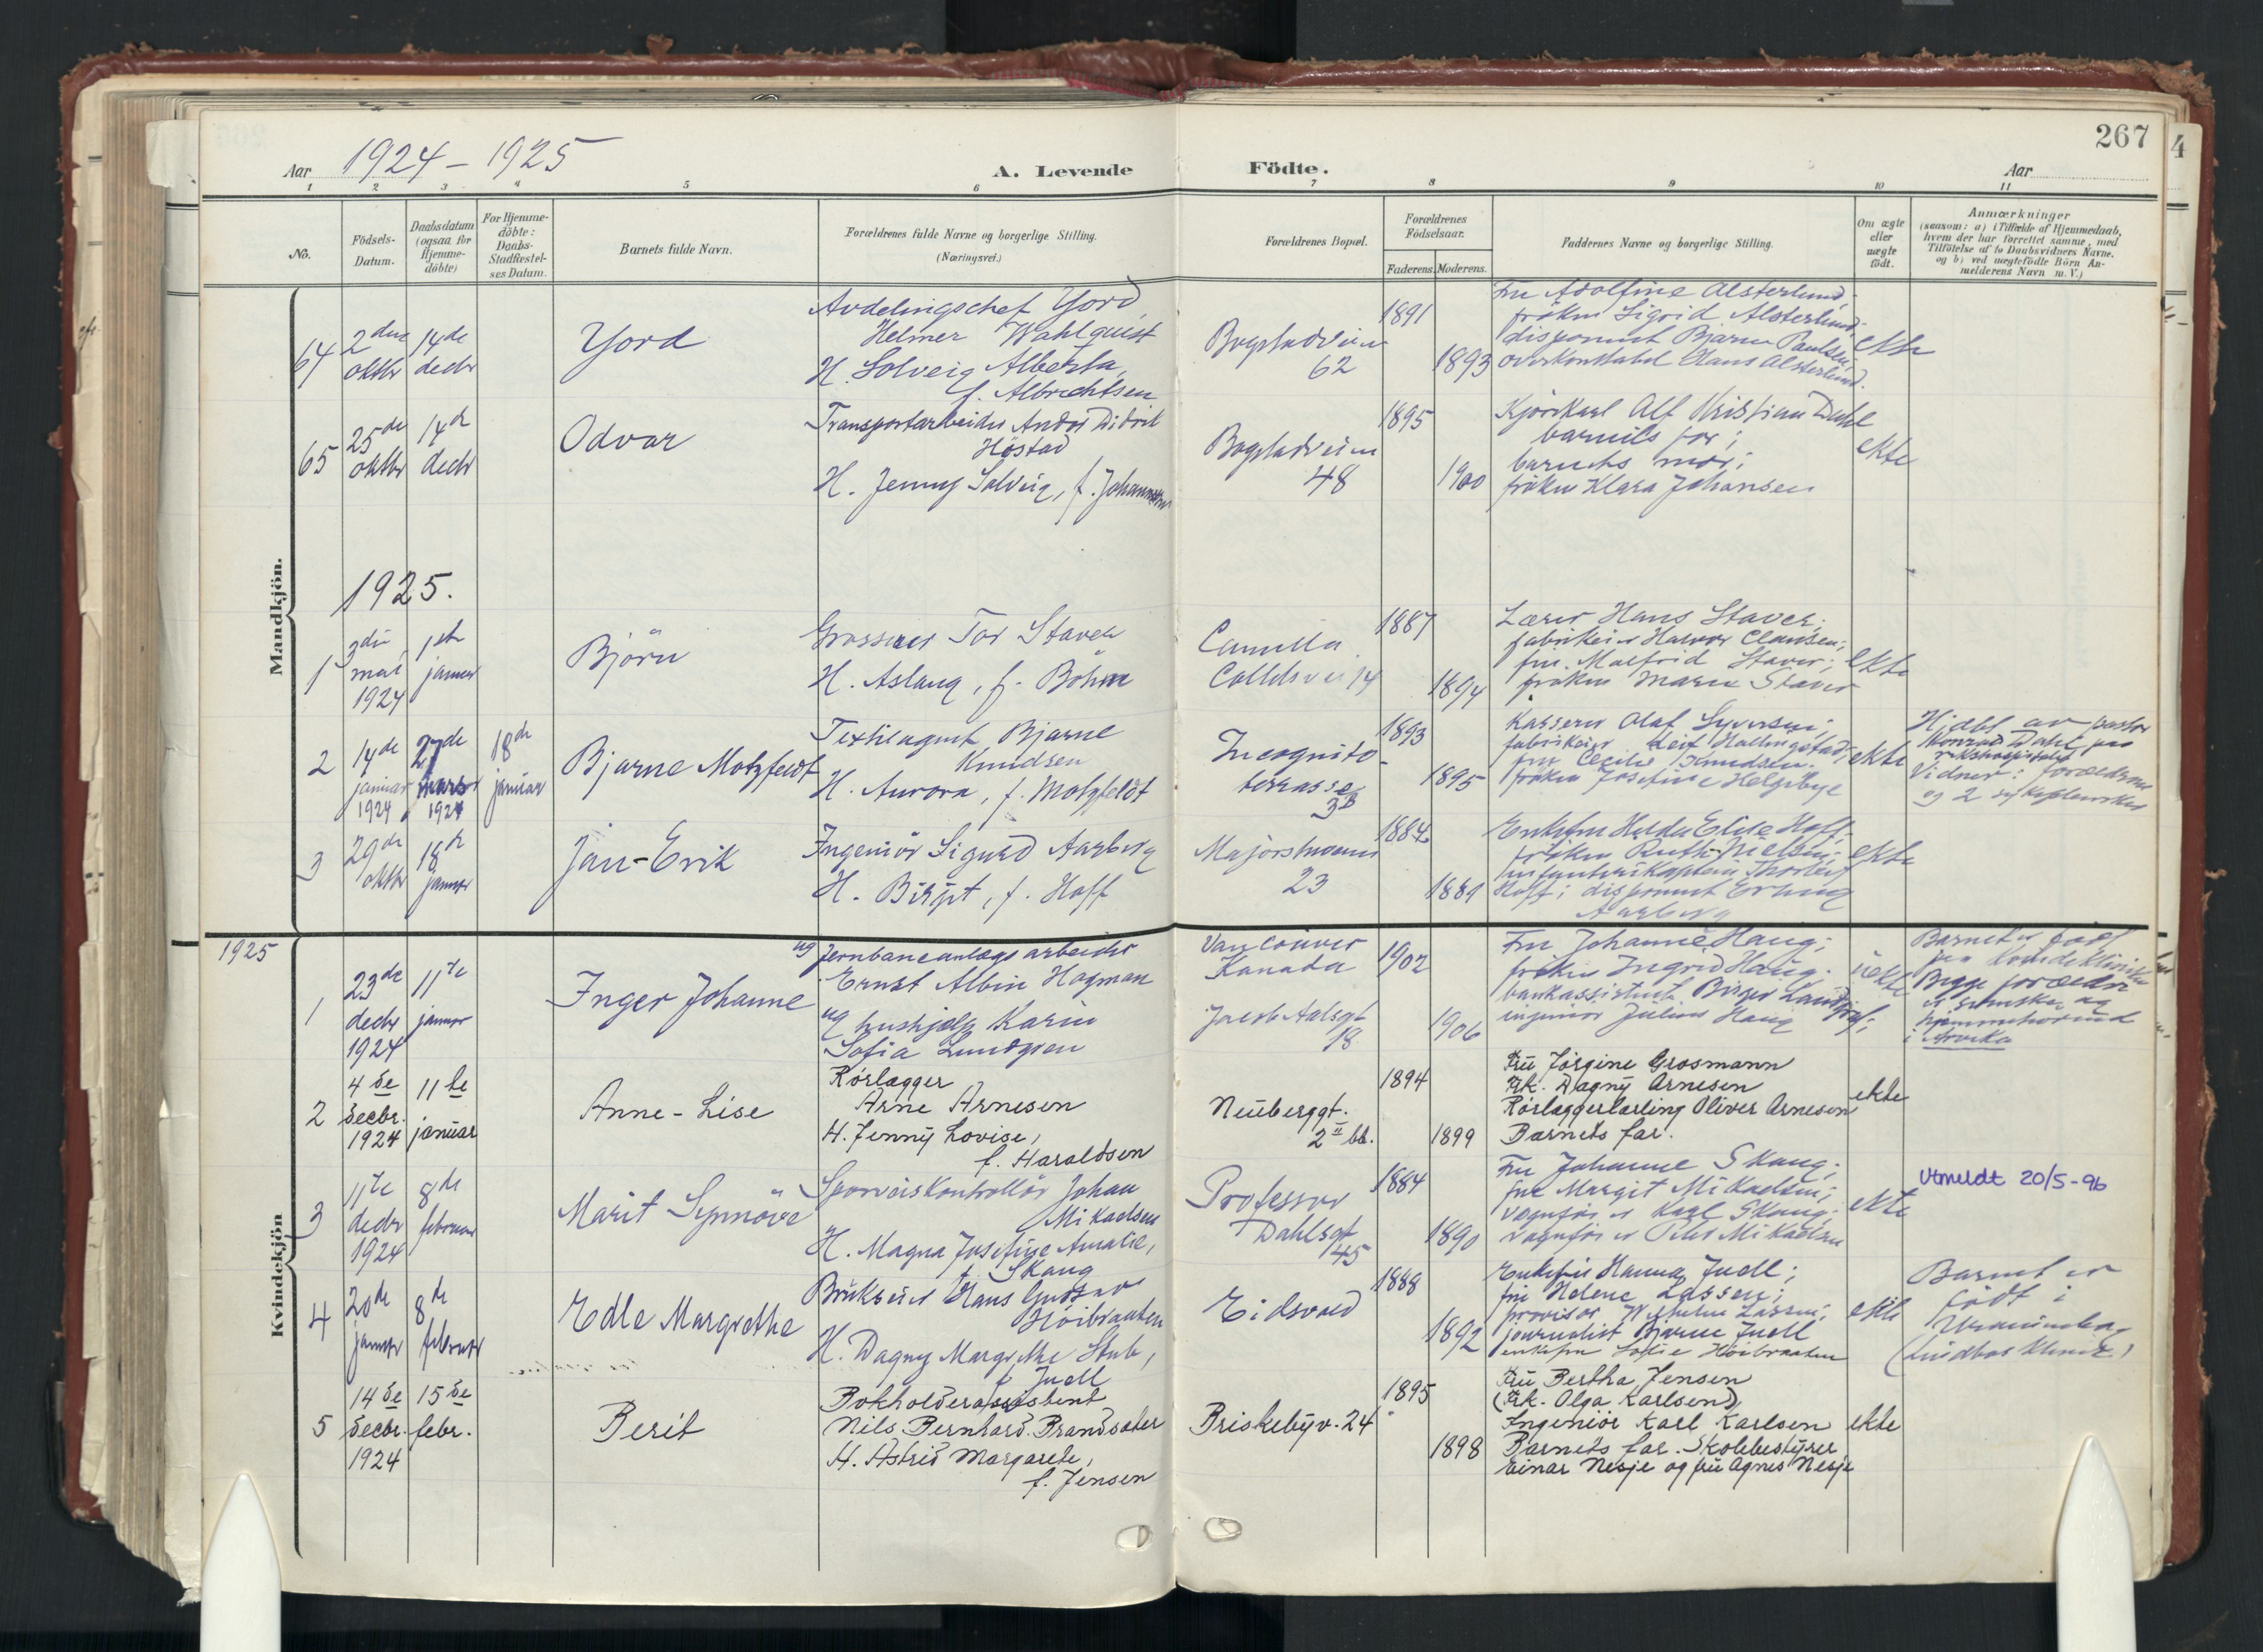 267
4
Aar 1924 - 1925
A. Levende Födte.
Aar
1 2 3 4 5 6 7 8 9 10 11
No.
Födsels-Datum.
Daabsdatum (ogsaa for Hjemme-döbte)
For Hjemme-döbte: Daabs-Stadfæstel-ses Datum.
Barnets fulde Navn.
Forældrenes fulde Navne og borgerlige Stilling.
(Næringsvei.)
Forældrenes Bopæl.
Forældrenes Födselsaar.
Faderens. Moderens.
Faddernes Navne og borgerlige Stilling.
Om ægte eller uægte födt.
Anmærkninger
(saasom: a) i Tilfælde af Hjemmedaab,
hvem der har forrettet samme, med
Tilföielse af to Daabsvidners Navne.
og b) ved uægtefödte Börn An-
melderens Navn m. V.)
Mandkjön.
64
2den oktbr
14de decbr
Yord
Avdelingschef Yord
Helmer Wahlquist
H. Solveig Alberta,
f. Albrechtsen
Bogstadveien
62
1891
1893
Fru Adolfine Alsterlund;
frøken Sigrid Alsterlund;
disponent Bjarne Paulsen;
overkonstabel Claus Alsterlund.
ekte
65
25de oktbr
14de decbr
Odvar
Transportarbeider Andor Didrik
Höstad
H. Jenny Solveig, f. Johannessen
Bogstadveien
48
1895
1900
Kjørekarl Alf Kristian Dahl
barnets far;
barnets mor;
frøken Klara Johansen
ekte
1925.
1
3die mai 1924
1ste januar
Björn
Grosserer Tor Staver
H. Aslaug, f. Böhm
Camilla
Colletsvei 14
1887
1894
Lærer Hans Staver;
fabrikeier Halvor Clausen;
fru Malfrid Staver;
frøken Marie Staver
ekte
2
14de januar 1924
27de mars 1924
18de januar
Bjarne Motzfeldt
Textilagent Bjarne
Knudsen
H. Aurora, f. Motzfeldt
Incognito-
terrasse
3B
1893
1895
Kasserer Olaf Syversen;
fabrikeier Leif Hallingstad;
fru Cecilie Knudsen;
frøken Josefine Helgebye
ekte
Hjdbt. av pastor
Konrad Dahl paa
rikshospitalet
Vidner: forældrene
og 2 sykepleersker
3
29de oktbr
18de januar
Jan-Erik
Ingeniör Sigurd Aarberg
H. Birgit, f. Hoff
Majorstuveien
23
1884
1889
Enkefru Hilda Elise Hoff;
frøken Ruth Nielsen;
infanterikaptein Thorleif
Hoff; disponent Erling
Aarberg
ekte
1925
Kvindekjön
1
23de decbr 1924
11te januar
Inger Johanne
ug jernbaneanlægsarbeider
Ernst Albin Hagman
ug hushjelp Karin
Sofia Lundgren
Vancouver
Kanada
Jacob Aalsgt
18
1902
1906
Fru Johanne Haug;
frøken Ingrid Haug;
bankassistent Birger Landgraf;
ingeniør Julius Haug
uekte
Barnet er født
paa Kvindekliniken
Begge forældre
er svenske og
hjemmehørende
i Arvika
2
4de decbr. 1924
11te januar
Anne-Lise
Rörlægger
Arne Arnesen
H. Jenny Lovise,
f. Haraldsen
Neuberggt.
2 II bb.
1894
1899
Fru Jörgine Grosmann
Frk. Dagny Arnesen
Rörlæggerlærling Oliver Arnesen
Barnets far.
ekte
3
11te decbr 1924
8de februar
Marit Synnöve
Sporveiskontrollör Johan
Mikaelsen
H. Magna Josefine Amalie,
f. Skaug
Professor
Dahlsgt
45
1884
1890
Fru Johanne Skaug;
fru Margit Mikaelsen;
vognfører Karl Skaug;
vognfører Peter Mikaelsen
ekte
Utmeldt 20/5-96
4
20de januar
8de februar
Edle Margrethe
Brukseier Hans Gustav
Höibraaten
H. Dagny Margrethe Stub,
f. Juell
Eidsvold
1888
1892
Enkefru Hanna Juell;
fru Helene Lassen;
provisor Wilhelm Lassen;
journalist Bjarne Juell
enkefru Sofie Höibraaten
ekte
Barnet er
födt i
Uranienborg
(Lindbos klinik)
5
14de decbr. 1924
15de febr.
Berit
Bokholderassistent
Nils Bernhard Brandsæter
H. Astrid Margarete,
f. Jensen
Briskebyv. 24
1895
1898
Fru Bertha Jensen
(Frk. Olga Karlsen)
Ingeniör Karl Karlsen
Barnets far. Skolebestyrer
Einar Nesje og fru Agnes Nesje
ekte